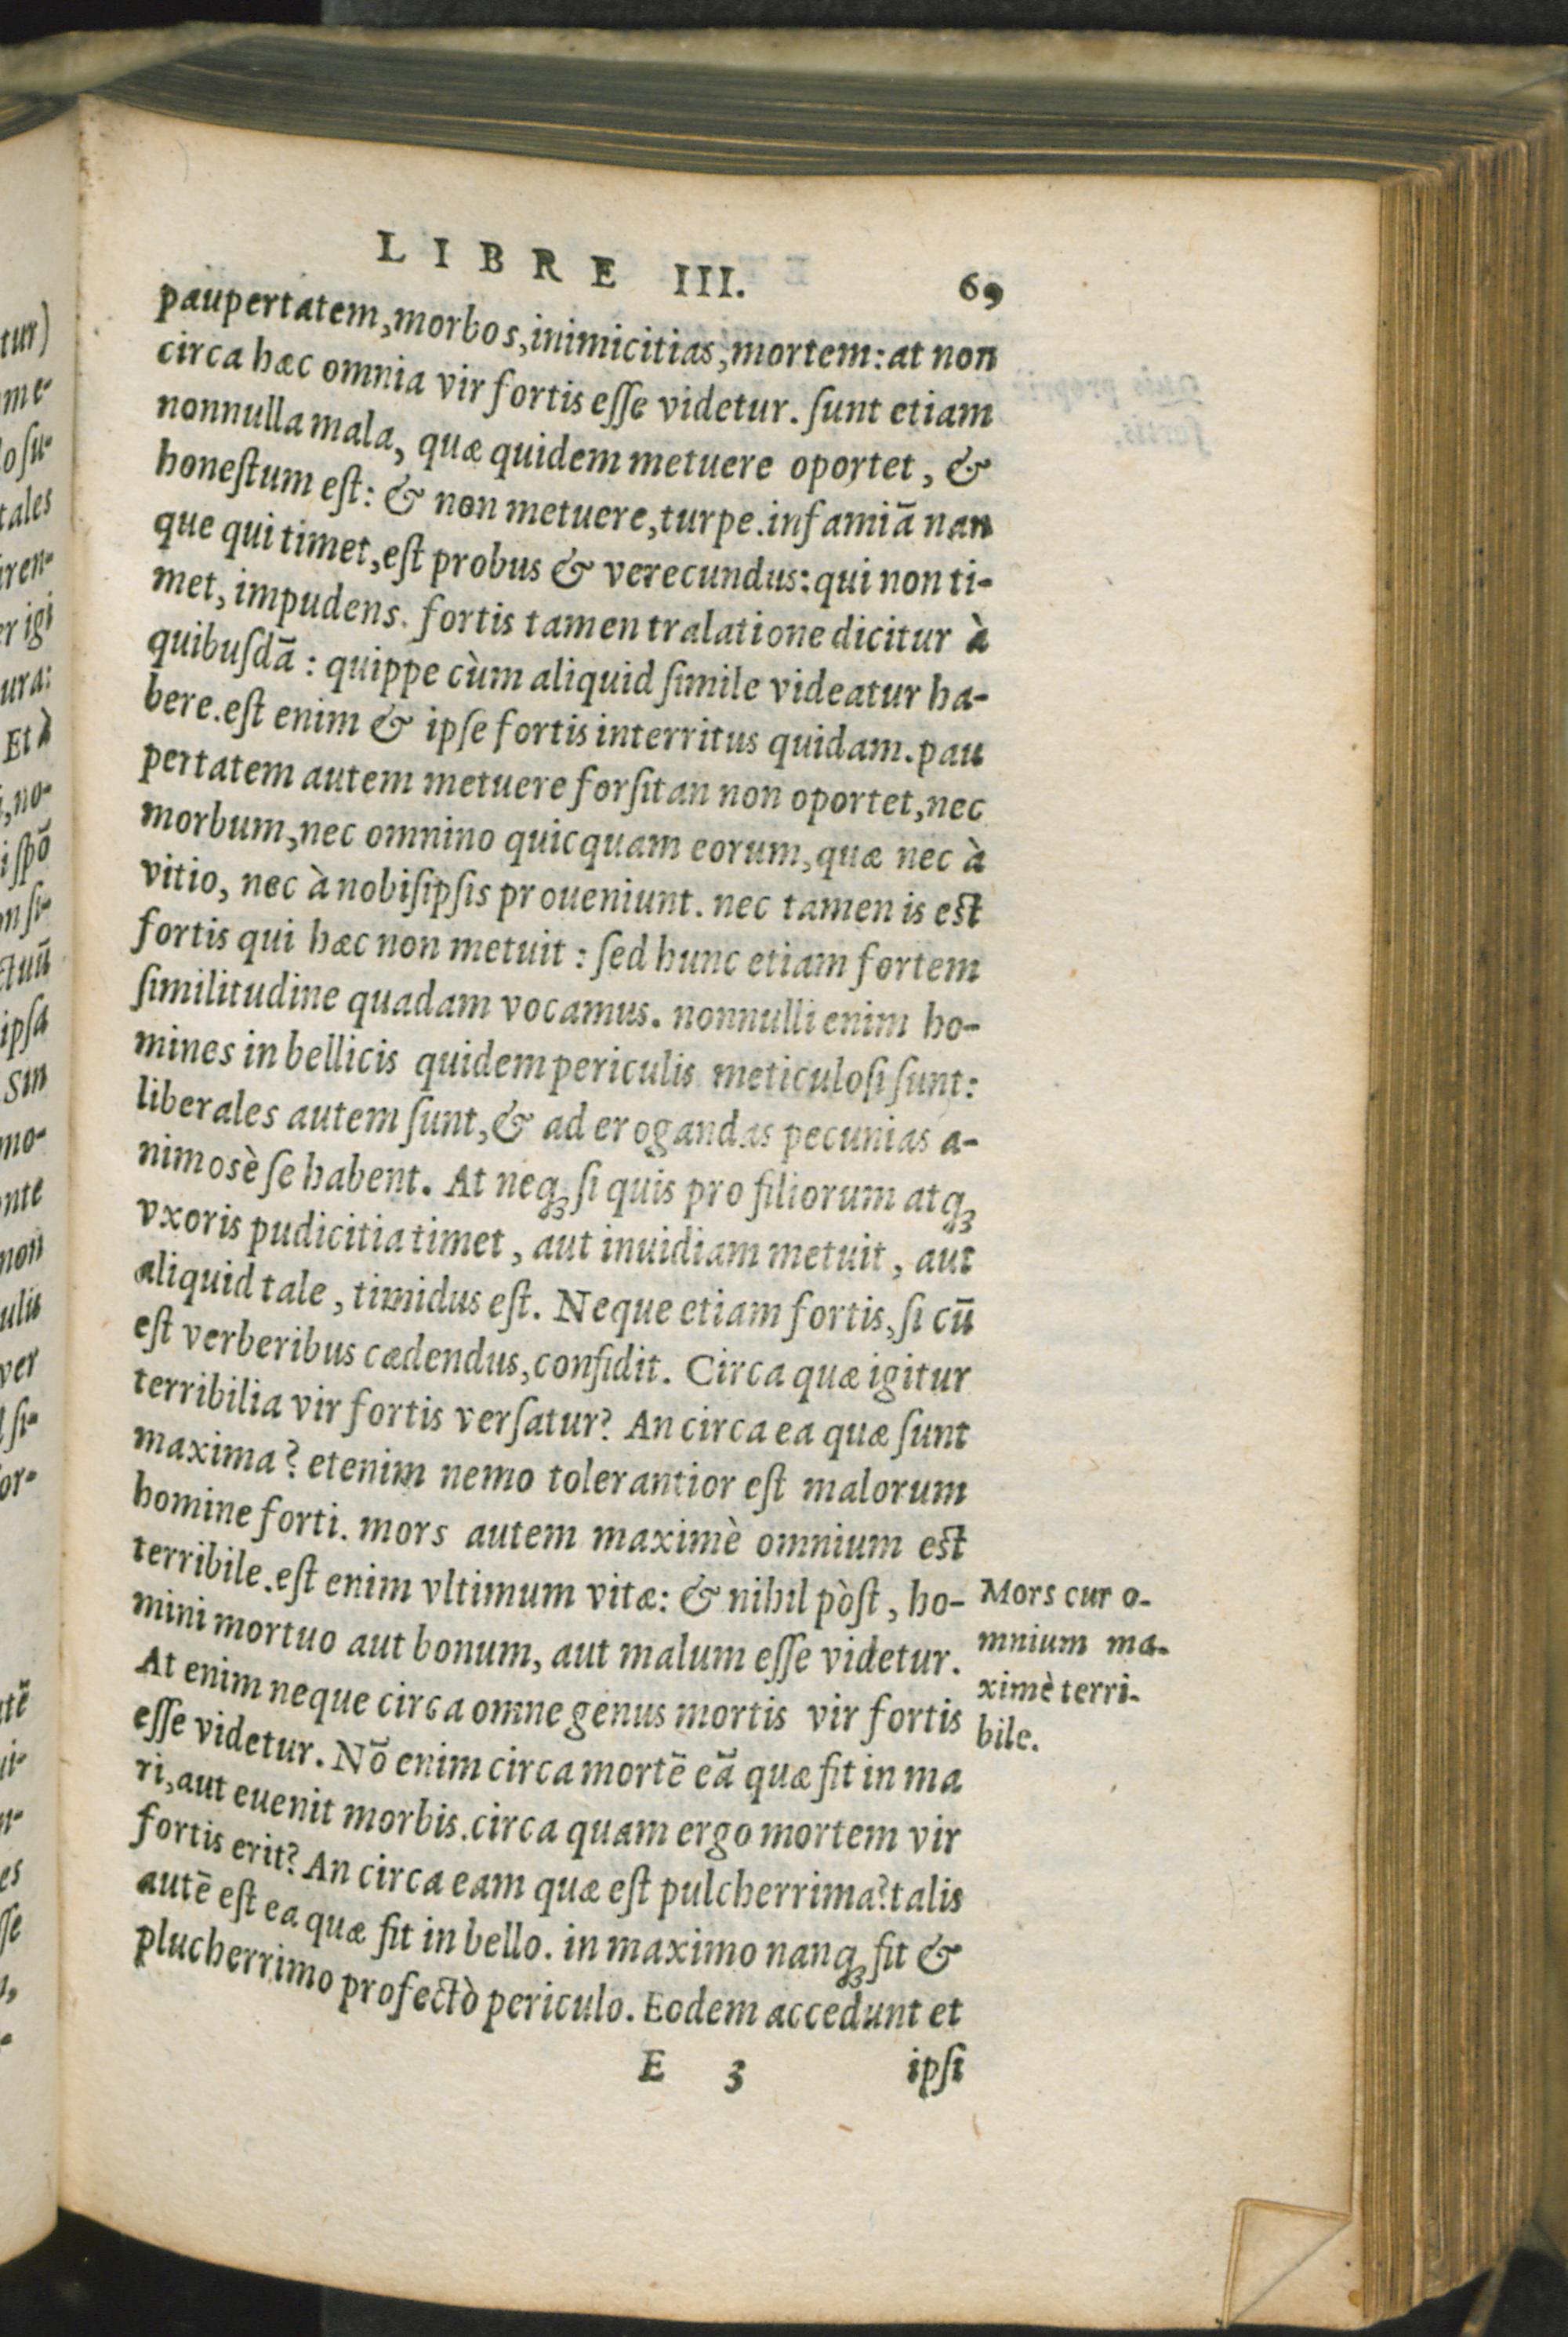 LIBRE III. 69
paupertatem, morbos, inimicitias, mortem: at non
circa hæc omnia vir fortis eſſe videtur. ſunt etiam
nonnulla mala, quæ quidem metuere oportet, &
honeſtum eſt: & non metuere, turpe. infamiā nan
que qui timet, eſt probus & verecundus: qui non ti-
met, impudens. fortis tamen tralatione dicitur à
quibuſdā: quippe cùm aliquid ſimile videatur ha-
bere. eſt enim & ipſe fortis interritus quidam. pau
pertatem autem metuere forſitan non oportet, nec
morbum, nec omnino quicquam eorum, quæ nec à
vitio, nec à nobiſipſis proueniunt. nec tamen is eſt
fortis qui hæc non metuit: ſed hunc etiam fortem
ſimilitudine quadam vocamus. nonnulli enim ho-
mines in bellicis quidem periculis meticuloſi ſunt:
liberales autem ſunt, & ad erogandas pecunias a-
nimosè ſe habent. At neqꝫ ſi quis pro filiorum atqꝫ
vxoris pudicitia timet, aut inuidiam metuit, aut
aliquid tale, timidus eſt. Neque etiam fortis, ſi cū
eſt verberibus cædendus, confidit. Circa quæ igitur
terribilia vir fortis verſatur? An circa ea quæ ſunt
maxima? etenim nemo tolerantior eſt malorum
homine forti. mors autem maximè omnium eſt
terribile. eſt enim vltimum vitæ: & nihil pòſt, ho-
mini mortuo aut bonum, aut malum eſſe videtur.
At enim neque circa omne genus mortis vir fortis
eſſe videtur. Nō enim circa mortē eā quæ fit in ma
ri, aut euenit morbis. circa quam ergo mortem vir
fortis erit? An circa eam quæ eſt pulcherrima? talis
autē eſt ea quæ fit in bello. in maximo nanqꝫ fit &
plucherrimo profectò periculo. Eodem accedunt et
E 3 ipſi
Mors cur o-
mnium ma-
ximè terri-
bile.
tur)
me-
o ſu-
tales
ren-
er igi
ura:
Et à
i, no-
i ſpō
on ſi-
ctuū
ipſa
Sin
mo-
nte
non
ulis
ver
ſi-
or-
tē